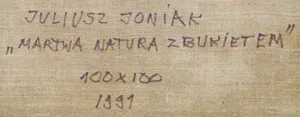 JULIUSZ JONIAK
„MARTWA NATURA Z BUKIETEM”
100X100
1991